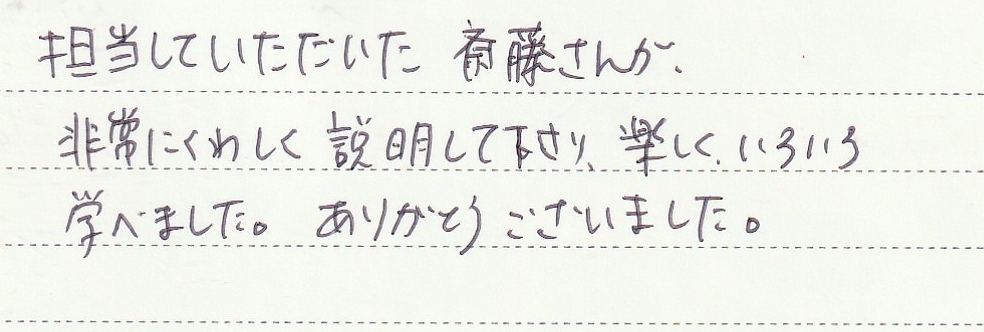 担当していただいた 斎藤さんが、
非常にくわしく説明して下さり、楽しく、いろいろ
学べました。ありがとうございました。